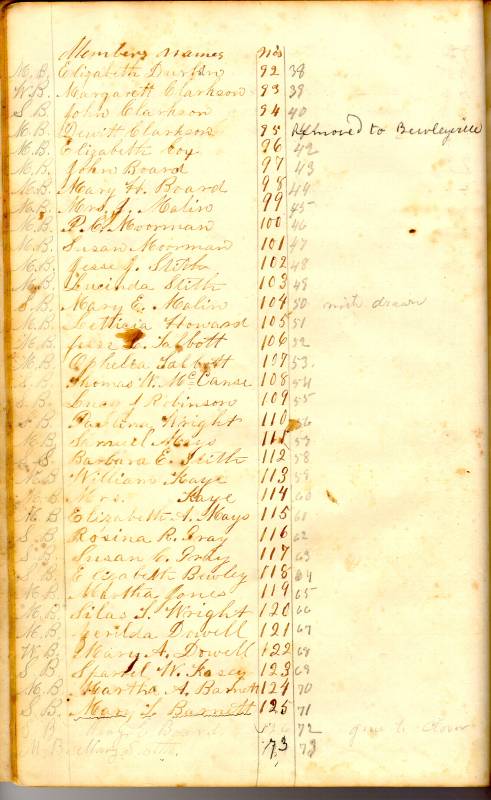 Members Names Nos
M. B. Elizabeth Durbin 92 38
W. B. Margarett Clarkson 93 39
S B John Clarkson 94 40
M. B. Dewitt Clarkson 95 Removed to Bewleyville
M. B. Elizabeth Cox 96 42
M. B. John Board 97 43
M. B. Mary H. Board 98 44
M. B. Mrs. J. Malin 99 45
M. B. P. C. Moorman 100 46
M. B. Susan Moorman 101 47
M. B. Jesse J. Stith 102 48
M. B. Lucinda Stith 103 49
S. B. Mary E. Malin 104 50 with drawn
M. B. Howard 105 51
M. B. Talbott 106 52
M. B. Ophelia Talbott 107 53.
S. B. Thomas W. McCanse 108 54
S. B. Lucy J Robinson 109 55
S. B. Paulina Wright 110 56
M. B. Samuel Mays 111 57
S Barbara E. Stith 112 58
M. B William Kaye 113 59
M. B Mrs. Kaye 114 60
M B Elizabeth A. Mays 115 61
S B Rosina R. Gray 116 62
S B Susan C. Gray 117 63
S. B. Elizabeth Bewley 118 64
M. B. Martha Jones 119 65
M. B. Silas S. Wright 120 66
M. B. Serilda Dowell 121 67
W. B. Mary A. Dowell 122 68
S B Spartel W. Kasey 123 69
M. B Martha A. Barnett 124 70
S. B. Mary L Barnett 125 71
S B Board 72 gone to
M B Mary Scott. 73 73